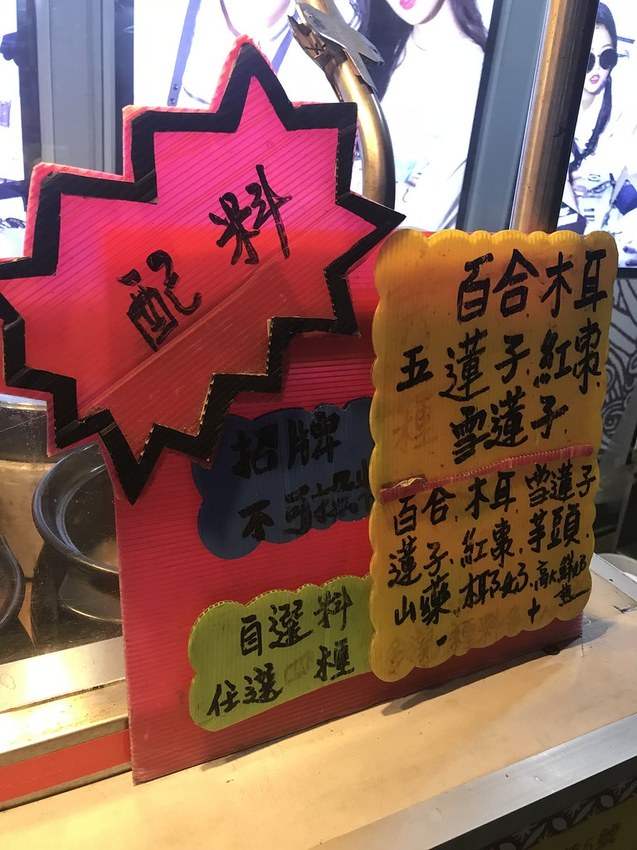 配料
百合 木耳
五 蓮子 紅棗
雪蓮子
招牌
不可
自選料
任選 種
百合 木耳 雪蓮子
蓮子 紅棗 芋頭
山藥 椰奶 高大鮮奶
- +